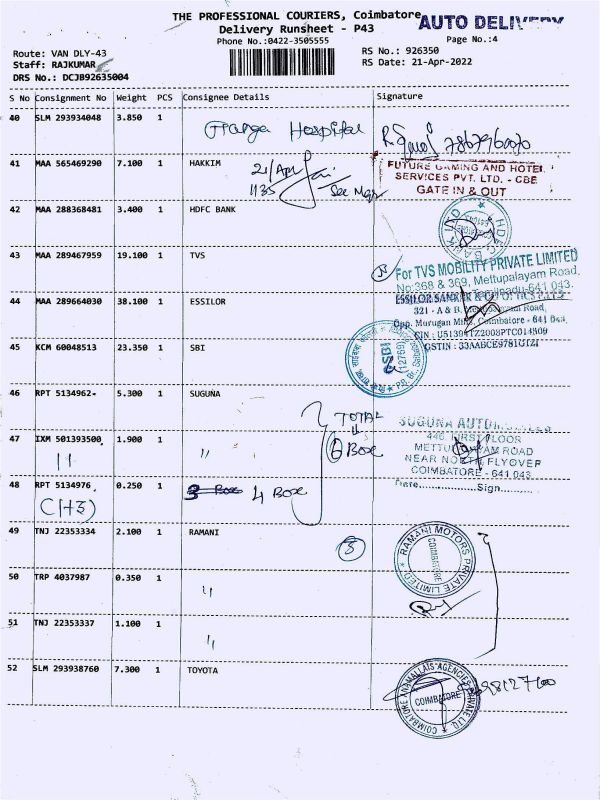 THE PROFESSIONAL COURIERS, Coimbatore
AUTO DELIVERY
Delivery Runsheet - P43
Phone No.:0422-3505555
Page No.:4
Route: VAN DLY-43
RS No.: 926350
Staff: RAJKUMAR
RS Date: 21-Apr-2022
DRS No.: DCJB92635004
S No Consignment No Weight PCS Consignee Details Signature
40 SLM 293934048 3.850 1 Ganga Hospital
41 MAA 565469290 7.100 1 HAKKIM
21/Apr
1135
FUTURE GAMING AND HOTEL
SERVICES PVT. LTD. - CBE
GATE IN & OUT
42 MAA 288368481 3.400 1 HDFC BANK
43 MAA 289467959 19.100 1 TVS
For TVS MOBILITY PRIVATE LIMITED
No:368 & 369, Mettupalayam Road,
Tamilnadu-641 043.
44 MAA 289664030 38.100 1 ESSILOR
321 - A & B, Road,
Opp. Murugan Mills, Coimbatore - 641 043,
GSTIN : 33AABCE9781G1ZI
45 KCM 60048513 23.350 1 SBI
SBI
(12769)
46 RPT 5134962- 5.300 1 SUGUNA
TOTAL
6 Box
SUGUNA
446, FIRST FLOOR
ROAD
NEAR NORTH FLYOVER
COIMBATORE - 641 043.
Date.................Sign.........
47 IXM 501393500 1.900 1 "
48 RPT 5134976 0.250 1 4 Box
C(H3)
49 TNJ 22353334 2.100 1 RAMANI
3
RAMANI MOTORS PRIVATE LIMITED
COIMBATORE
50 TRP 4037987 0.350 1 "
51 TNJ 22353337 1.100 1 "
52 SLM 293938760 7.300 1 TOYOTA
ANAMALLAIS AGENCIES PRIVATE LTD. COIMBATORE
COIMBATORE